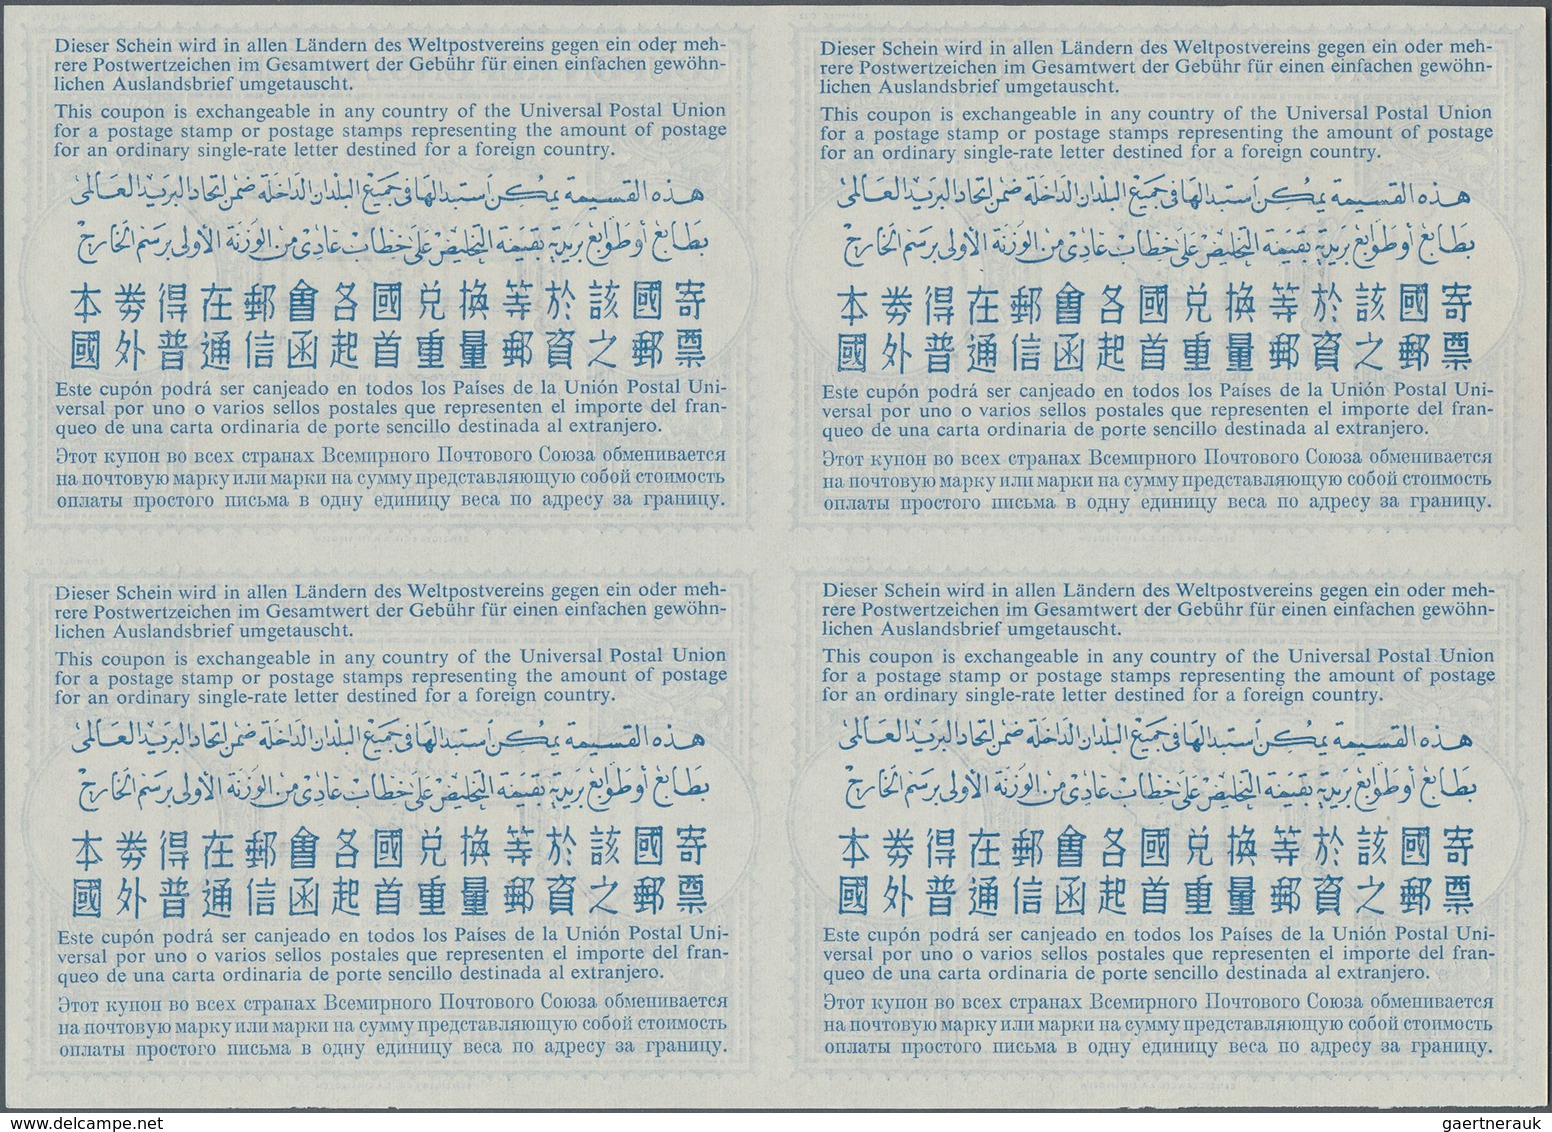 Dieser Schein wird in allen Ländern des Weltpostvereins gegen ein oder meh-
rere Postwertzeichen im Gesamtwert der Gebühr für einen einfachen gewöhn-
lichen Auslandsbrief umgetauscht.
This coupon is exchangeable in any country of the Universal Postal Union
for a postage stamp or postage stamps representing the amount of postage
for an ordinary single-rate letter destined for a foreign country.
هذه القسيمة يمكن استبدالها في جميع البلدان الداخلة ضمن اتحاد البريد العالمى
بطابع أو طوابع بريدية بقيمة التخليص على خطاب عادى من الوزنة الأولى برسم الخارج
本券得在郵會各國兌換等於該國寄
國外普通信函起首重量郵資之郵票
Este cupón podrá ser canjeado en todos los Países de la Unión Postal Uni-
versal por uno o varios sellos postales que representen el importe del fran-
queo de una carta ordinaria de porte sencillo destinada al extranjero.
Этот купон во всех странах Всемирного Почтового Союза обменивается
на почтовую марку или марки на сумму представляющую собой стоимость
оплаты простого письма в одну единицу веса по адресу за границу.
Dieser Schein wird in allen Ländern des Weltpostvereins gegen ein oder meh-
rere Postwertzeichen im Gesamtwert der Gebühr für einen einfachen gewöhn-
lichen Auslandsbrief umgetauscht.
This coupon is exchangeable in any country of the Universal Postal Union
for a postage stamp or postage stamps representing the amount of postage
for an ordinary single-rate letter destined for a foreign country.
هذه القسيمة يمكن استبدالها في جميع البلدان الداخلة ضمن اتحاد البريد العالمى
بطابع أو طوابع بريدية بقيمة التخليص على خطاب عادى من الوزنة الأولى برسم الخارج
本券得在郵會各國兌換等於該國寄
國外普通信函起首重量郵資之郵票
Este cupón podrá ser canjeado en todos los Países de la Unión Postal Uni-
versal por uno o varios sellos postales que representen el importe del fran-
queo de una carta ordinaria de porte sencillo destinada al extranjero.
Этот купон во всех странах Всемирного Почтового Союза обменивается
на почтовую марку или марки на сумму представляющую собой стоимость
оплаты простого письма в одну единицу веса по адресу за границу.
Dieser Schein wird in allen Ländern des Weltpostvereins gegen ein oder meh-
rere Postwertzeichen im Gesamtwert der Gebühr für einen einfachen gewöhn-
lichen Auslandsbrief umgetauscht.
This coupon is exchangeable in any country of the Universal Postal Union
for a postage stamp or postage stamps representing the amount of postage
for an ordinary single-rate letter destined for a foreign country.
هذه القسيمة يمكن استبدالها في جميع البلدان الداخلة ضمن اتحاد البريد العالمى
بطابع أو طوابع بريدية بقيمة التخليص على خطاب عادى من الوزنة الأولى برسم الخارج
本券得在郵會各國兌換等於該國寄
國外普通信函起首重量郵資之郵票
Este cupón podrá ser canjeado en todos los Países de la Unión Postal Uni-
versal por uno o varios sellos postales que representen el importe del fran-
queo de una carta ordinaria de porte sencillo destinada al extranjero.
Этот купон во всех странах Всемирного Почтового Союза обменивается
на почтовую марку или марки на сумму представляющую собой стоимость
оплаты простого письма в одну единицу веса по адресу за границу.
Dieser Schein wird in allen Ländern des Weltpostvereins gegen ein oder meh-
rere Postwertzeichen im Gesamtwert der Gebühr für einen einfachen gewöhn-
lichen Auslandsbrief umgetauscht.
This coupon is exchangeable in any country of the Universal Postal Union
for a postage stamp or postage stamps representing the amount of postage
for an ordinary single-rate letter destined for a foreign country.
هذه القسيمة يمكن استبدالها في جميع البلدان الداخلة ضمن اتحاد البريد العالمى
بطابع أو طوابع بريدية بقيمة التخليص على خطاب عادى من الوزنة الأولى برسم الخارج
本券得在郵會各國兌換等於該國寄
國外普通信函起首重量郵資之郵票
Este cupón podrá ser canjeado en todos los Países de la Unión Postal Uni-
versal por uno o varios sellos postales que representen el importe del fran-
queo de una carta ordinaria de porte sencillo destinada al extranjero.
Этот купон во всех странах Всемирного Почтового Союза обменивается
на почтовую марку или марки на сумму представляющую собой стоимость
оплаты простого письма в одну единицу веса по адресу за границу.
www.delcampe.net
gaertnerauk